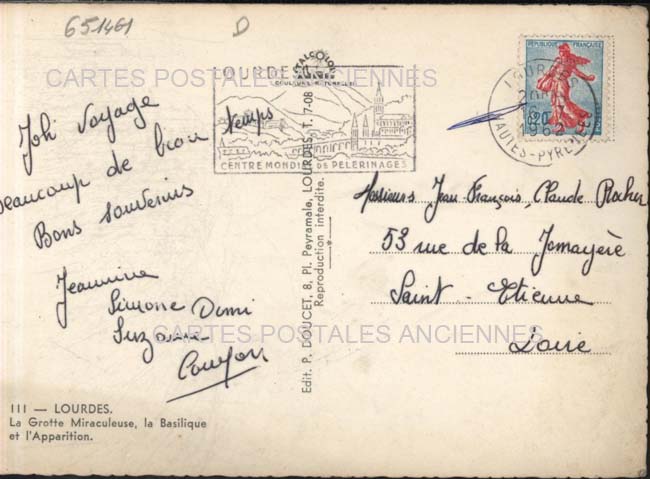 651461
D
LOURDES
CENTRE MONDIAL DE PELERINAGES
REPUBLIQUE FRANÇAISE
LOURDES
1962
HAUTES-PYRENEES
CARTES POSTALES ANCIENNES
Joli voyage
beaucoup de beau temps
Bons souvenirs
Jeannine
Simone Domi
Suzanne
Messieurs Jean-François, Claude Rocher
53 rue de la Jomayère
Saint-Etienne
Loire
CARTES POSTALES ANCIENNES
Edit. P. DOUCET, 8, Pl. Peyramale, LOURDES 11.7-08
Reproduction interdite.
III — LOURDES.
La Grotte Miraculeuse, la Basilique
et l'Apparition.